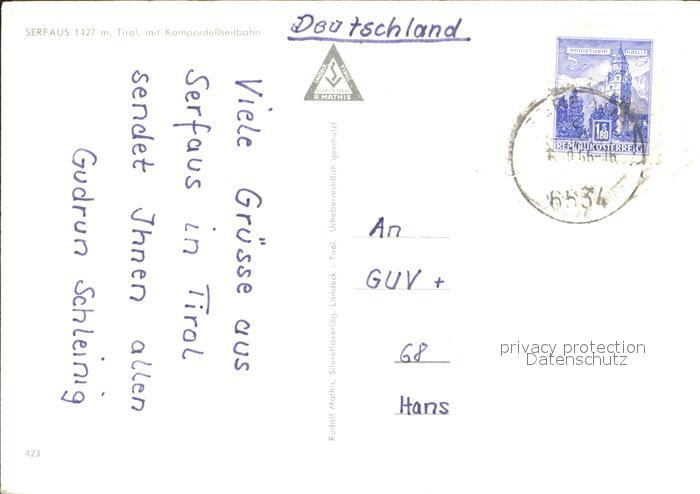 SERFAUS 1427 m, Tirol, mit Komperdellseilbahn
Deutschland
R. MATHIS
MÜNZTURM HALL I.T.
1.80 S
REPUBLIK ÖSTERREICH
6534
Viele Grüsse aus
Serfaus in Tirol
sendet Ihnen allen
Gudrun Schleinig
Rudolf Mathis, Silvrettaverlag, Landeck - Tirol. Urheberrechtlich geschützt!
An
GUV +
68
Hans
privacy protection
Datenschutz
423